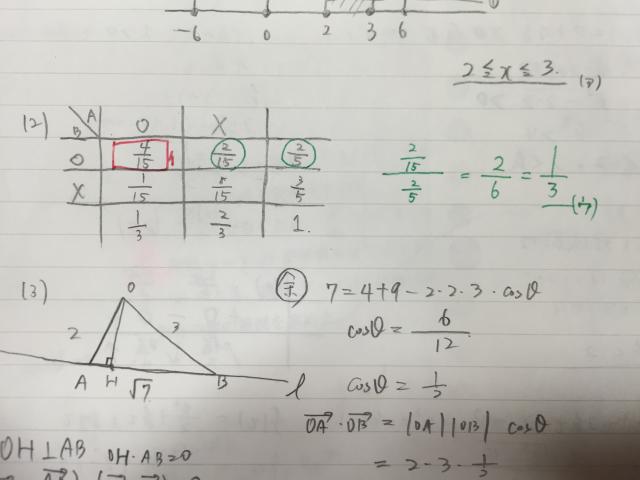 -6 0 2 3 6
2 ≦ x ≦ 3 (ア)
(2) A B O X
O 4/15 2/15 2/5
X 1/15 3/5
1/3 2/3 1.
(2/15)/(2/5) = 2/6 = 1/3
(3) O
2 3
A H √7 B l
余 7 = 4 + 9 - 2・2・3・cosθ
cosθ = 6/12
cosθ = 1/2
→OA・→OB = |OA||OB| cosθ
= 2・3・1/2
OH⊥AB OH・AB=0